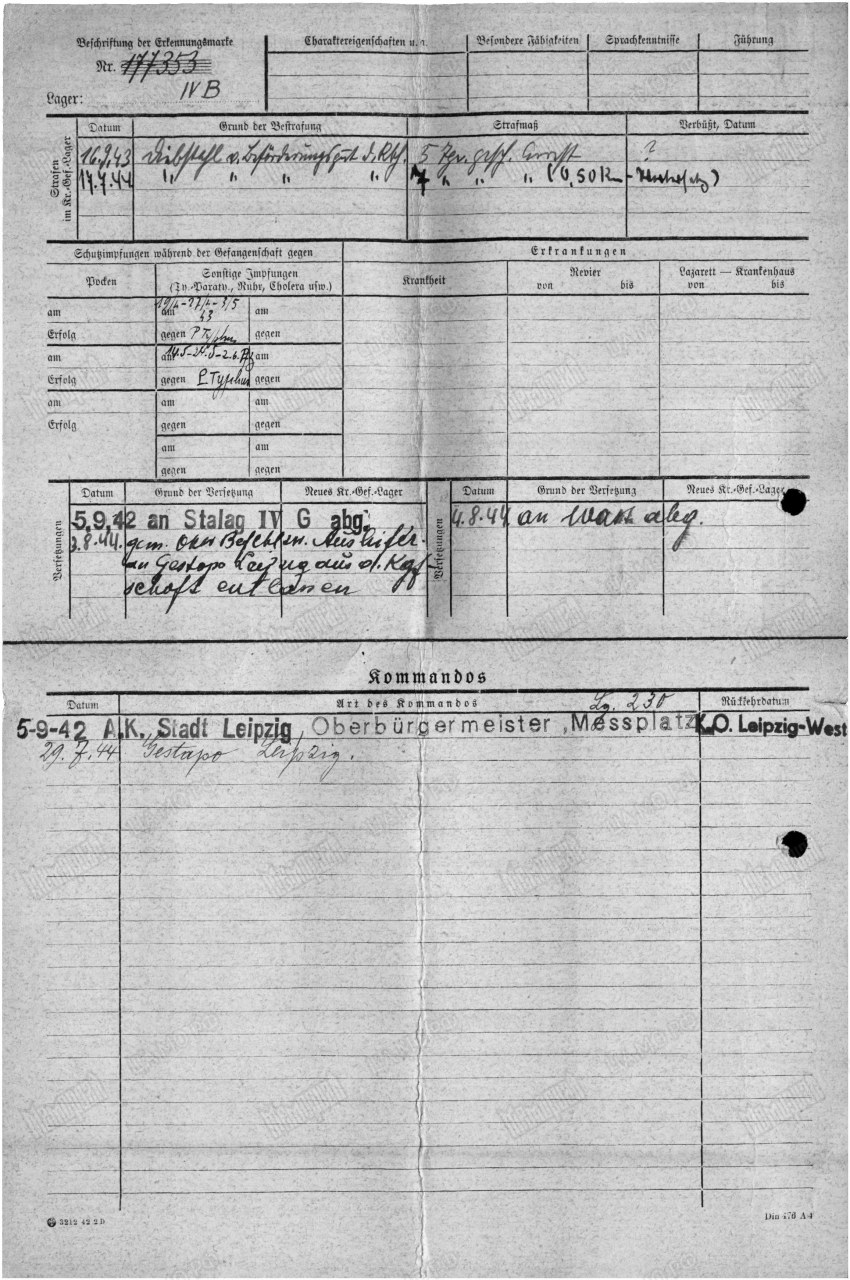 Beschriftung der Erkennungsmarke
Nr. 177353
Lager: IV B
Charaktereigenschaften u.
Besondere Fähigkeiten
Sprachkenntnisse
Führung
Strafen im Kr.-Gef.-Lager
Datum Grund der Bestrafung Strafmaß Verbüßt, Datum
16.9.43 Diebstahl v. Beförderungsgut d. Rbh. 5 Tge. gesch. Arrest ?
17.7.44 " " " " 7 " " " (0,50 Km-
Schutzimpfungen während der Gefangenschaft gegen
Erkrankungen
Pocken
Sonstige Impfungen
(Ty.-Paraty., Ruhr, Cholera usw.)
Krankheit
Revier
von bis
Lazarett — Krankenhaus
von bis
am am 19/4-27/4-3/5 43 am
Erfolg gegen P Typhus gegen
am am 14.5-24.5-2.6. am
Erfolg gegen P. Typhus gegen
am am am
Erfolg gegen gegen
am am
gegen gegen
Versetzungen
Datum Grund der Versetzung Neues Kr.-Gef.-Lager
5.9.42 an Stalag IV G abg.
3.8.44. gem. OKW Befehl zw. Ausliefer.
an Gestapo Leipzig aus d. Kgf-
schaft entlassen
Versetzungen
Datum Grund der Versetzung Neues Kr.-Gef.-Lager
4.8.44 an WASt abg.
Kommandos
Datum Art des Kommandos Lg. 230 Rückkehrdatum
5-9-42 A.K. Stadt Leipzig, Oberbürgermeister, Messplatz K.O. Leipzig-West
29.7.44 Gestapo Leipzig.
5212 42 2 D
Din 476 A 4